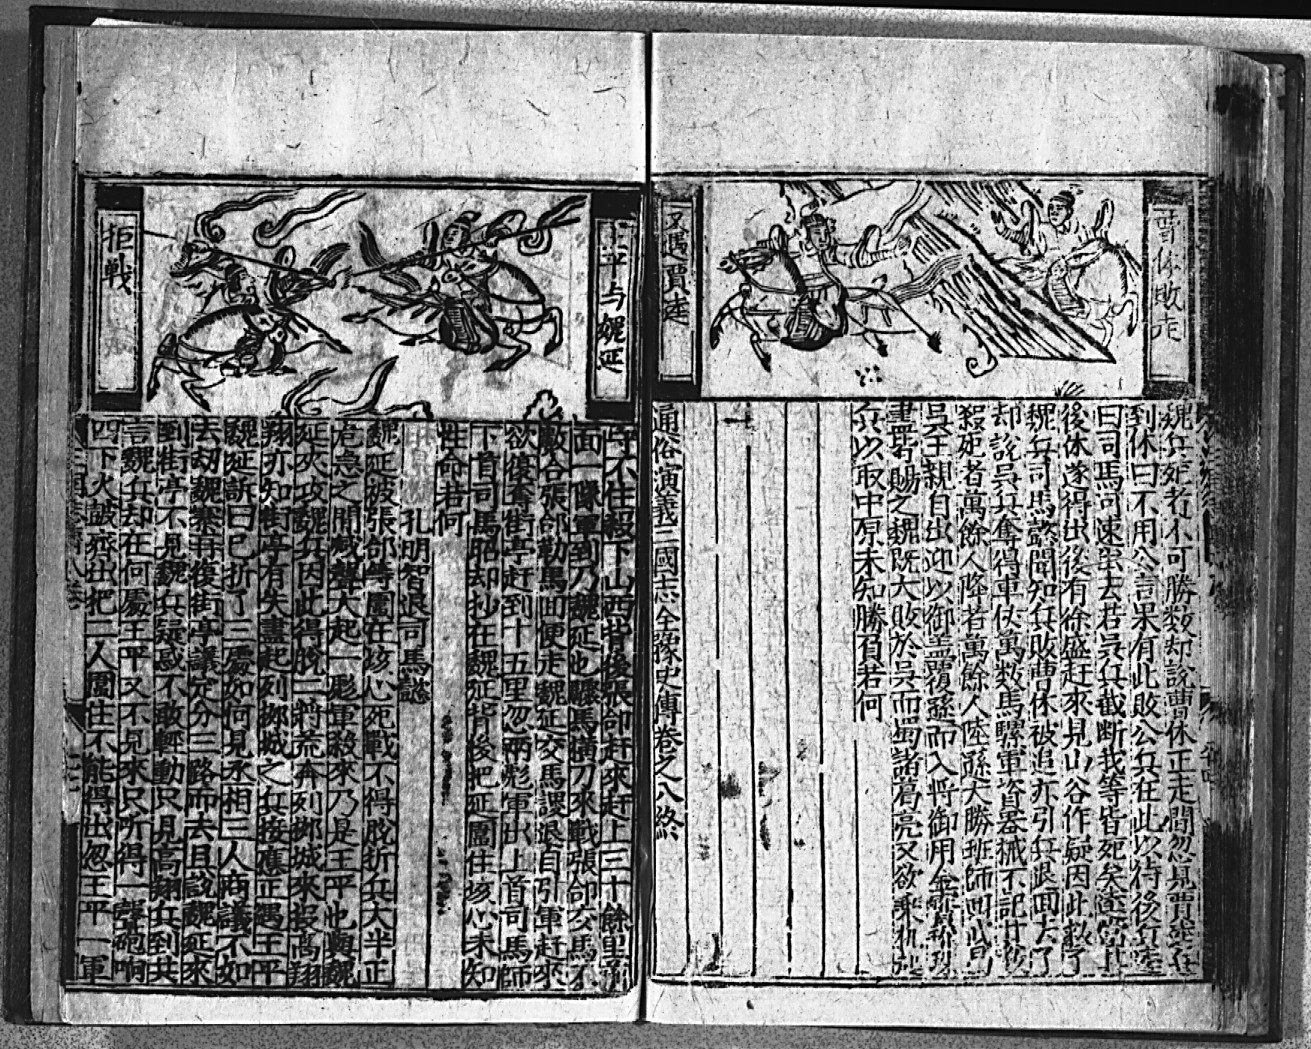 曹休敗走
又遇賈逵
魏兵死者不可勝数却説曹休正走間忽見賈逵
到休曰不用公言果有此敗公兵在此以待後兵
曰司馬可速出去若吳兵截断我等皆死矣
後休遂得出後有徐盛赶來見山谷作疑因此
魏兵司馬懿聞知兵敗曹休被追亦引兵退回去了
却説吳兵奪得車仗萬数馬騾軍資器械不記其
殺死者萬餘人降者萬餘人陸遜大勝班師回
吳王親自出迎以御盖覆遜而入将御用金
盡皆賜之魏既大敗於吳而蜀諸葛亮又欲乘
兵以取中原未知勝負若何
通俗演義三國志全像史傳卷之八終
王平与魏延
拒戰
不住殺下山西背後張郃赶來赶上三十餘里前
面一隊軍到乃魏延也驟馬横刀來戰張郃交馬不
数合張郃勒馬回便走魏延交馬謖退自引軍赶來
欲復奪街亭赶到十五里忽兩彪軍出上首司馬師
下首司馬昭却抄在魏延背後把延圍住垓心未知
性命若何
孔明智退司馬懿
魏延被張郃等圍在垓心死戰不得脫折兵大半正
危急之間喊聲大起一彪軍殺來乃是王平也與魏
延夾攻魏兵因此得脫二將荒奔列柳城來投高翔
翔亦知街亭有失盡起列柳城之兵接應正遇王平
魏延訴曰已折了二處如何見丞相三人商議不如
去刼魏寨再復街亭議定分三路而去且說魏延來
到街亭不見魏兵疑惑不敢輕動只見高翔兵到共
言魏兵却在何處王平又不見來只听得一聲砲响
四下火鼓齊出把二人圍住不能得出忽王平一軍